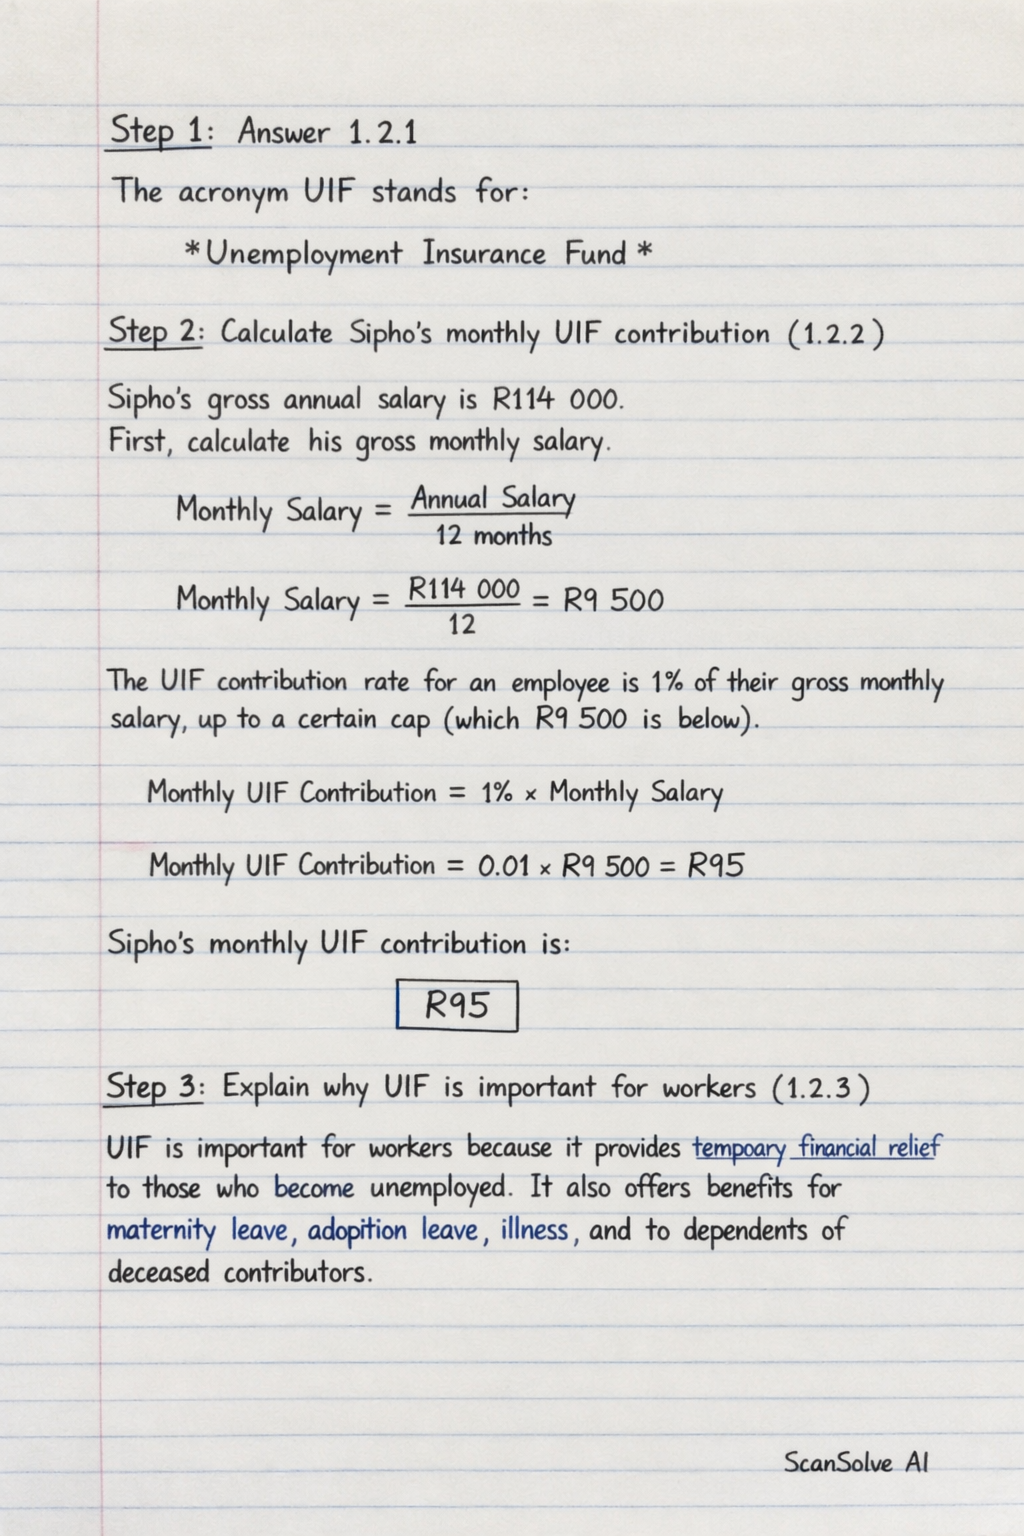 Step 1: Answer 1.2.1
The acronym UIF stands for:
*Unemployment Insurance Fund*
Step 2: Calculate Sipho's monthly UIF contribution (1.2.2)
Sipho's gross annual salary is R114 000.
First, calculate his gross monthly salary.
Monthly Salary = Annual Salary / 12 months
Monthly Salary = R114 000 / 12 = R9 500
The UIF contribution rate for an employee is 1% of their gross monthly
salary, up to a certain cap (which R9 500 is below).
Monthly UIF Contribution = 1% × Monthly Salary
Monthly UIF Contribution = 0.01 × R9 500 = R95
Sipho's monthly UIF contribution is:
R95
Step 3: Explain why UIF is important for workers (1.2.3)
UIF is important for workers because it provides tempoary financial relief
to those who become unemployed. It also offers benefits for
maternity leave, adopition leave, illness, and to dependents of
deceased contributors.
ScanSolve AI